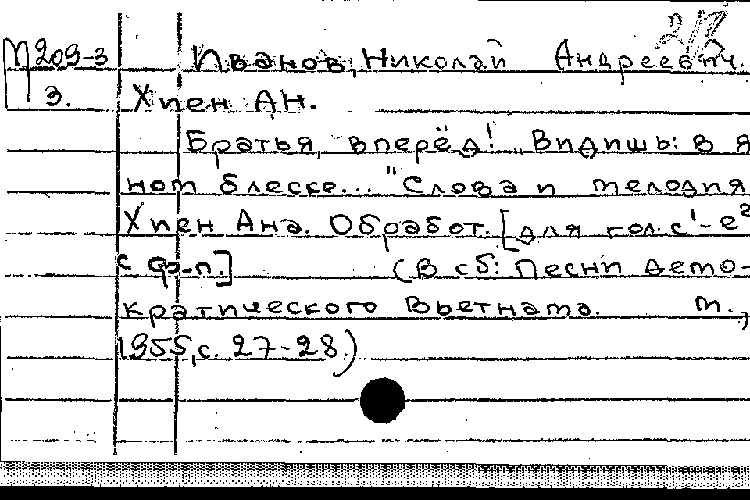 П209-3 Иванов, Николай Андреевич.
3. Хиен АН.
Братья, вперёд! „Видишь: в я
ном блеске..." Слова и мелодия
Хиен Ана. Обработ. [для гол. с¹-е²
с ф-п.] (В сб: Песни демо-
кратического Вьетнама. М.,
1955, с. 27-28.)